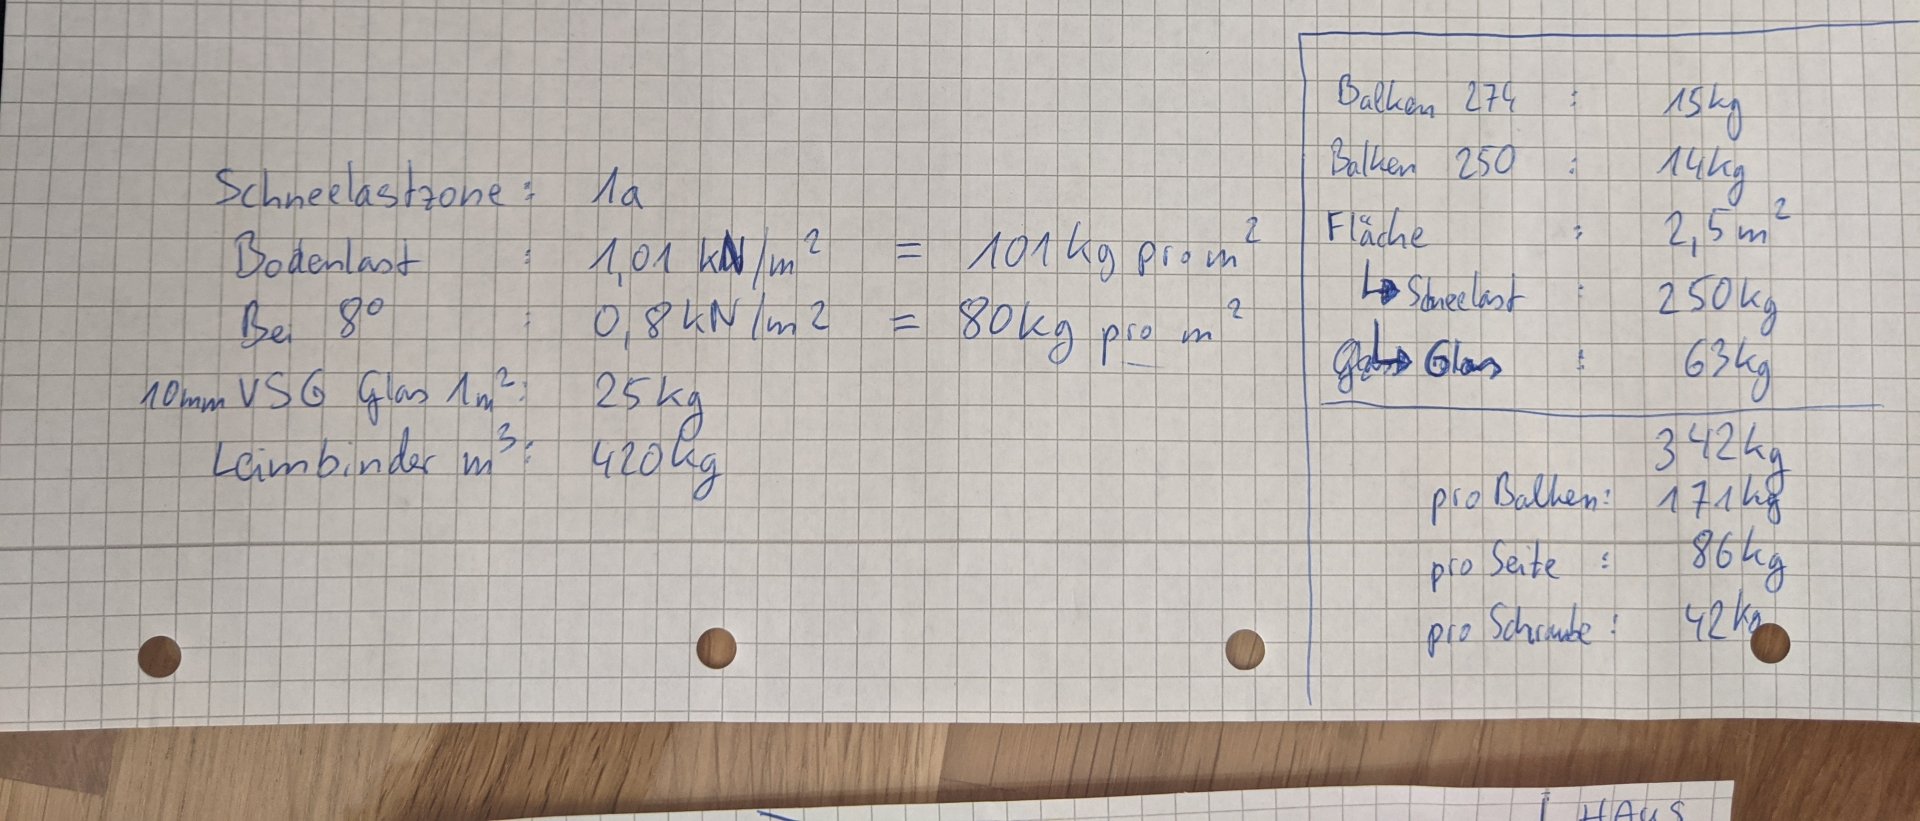 Schneelastzone : 1a
Bodenlast : 1,01 kN/m² = 101kg pro m²
Bei 8° : 0,8kN/m2 = 80kg pro m²
10mm VSG Glas 1m²: 25kg
Leimbinder m³: 420kg
Balken 274 : 15kg
Balken 250 : 14kg
Fläche : 2,5m²
↳ Schneelast : 250kg
↳ Glas : 63kg
342kg
pro Balken: 171kg
pro Seite : 86kg
pro Schraube : 42kg
HAUS